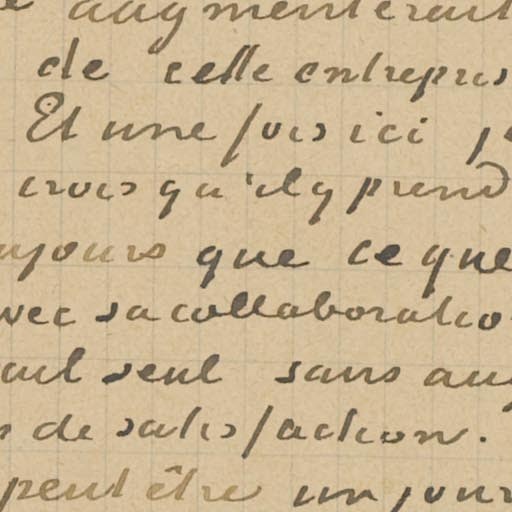 augmenterait
de cette entrepris
Et une fois ici j
crois qu'il y prend
ujours que ce que
vec sa collaboratio
ait seul sans au
s de satisfaction.
peut être un jour